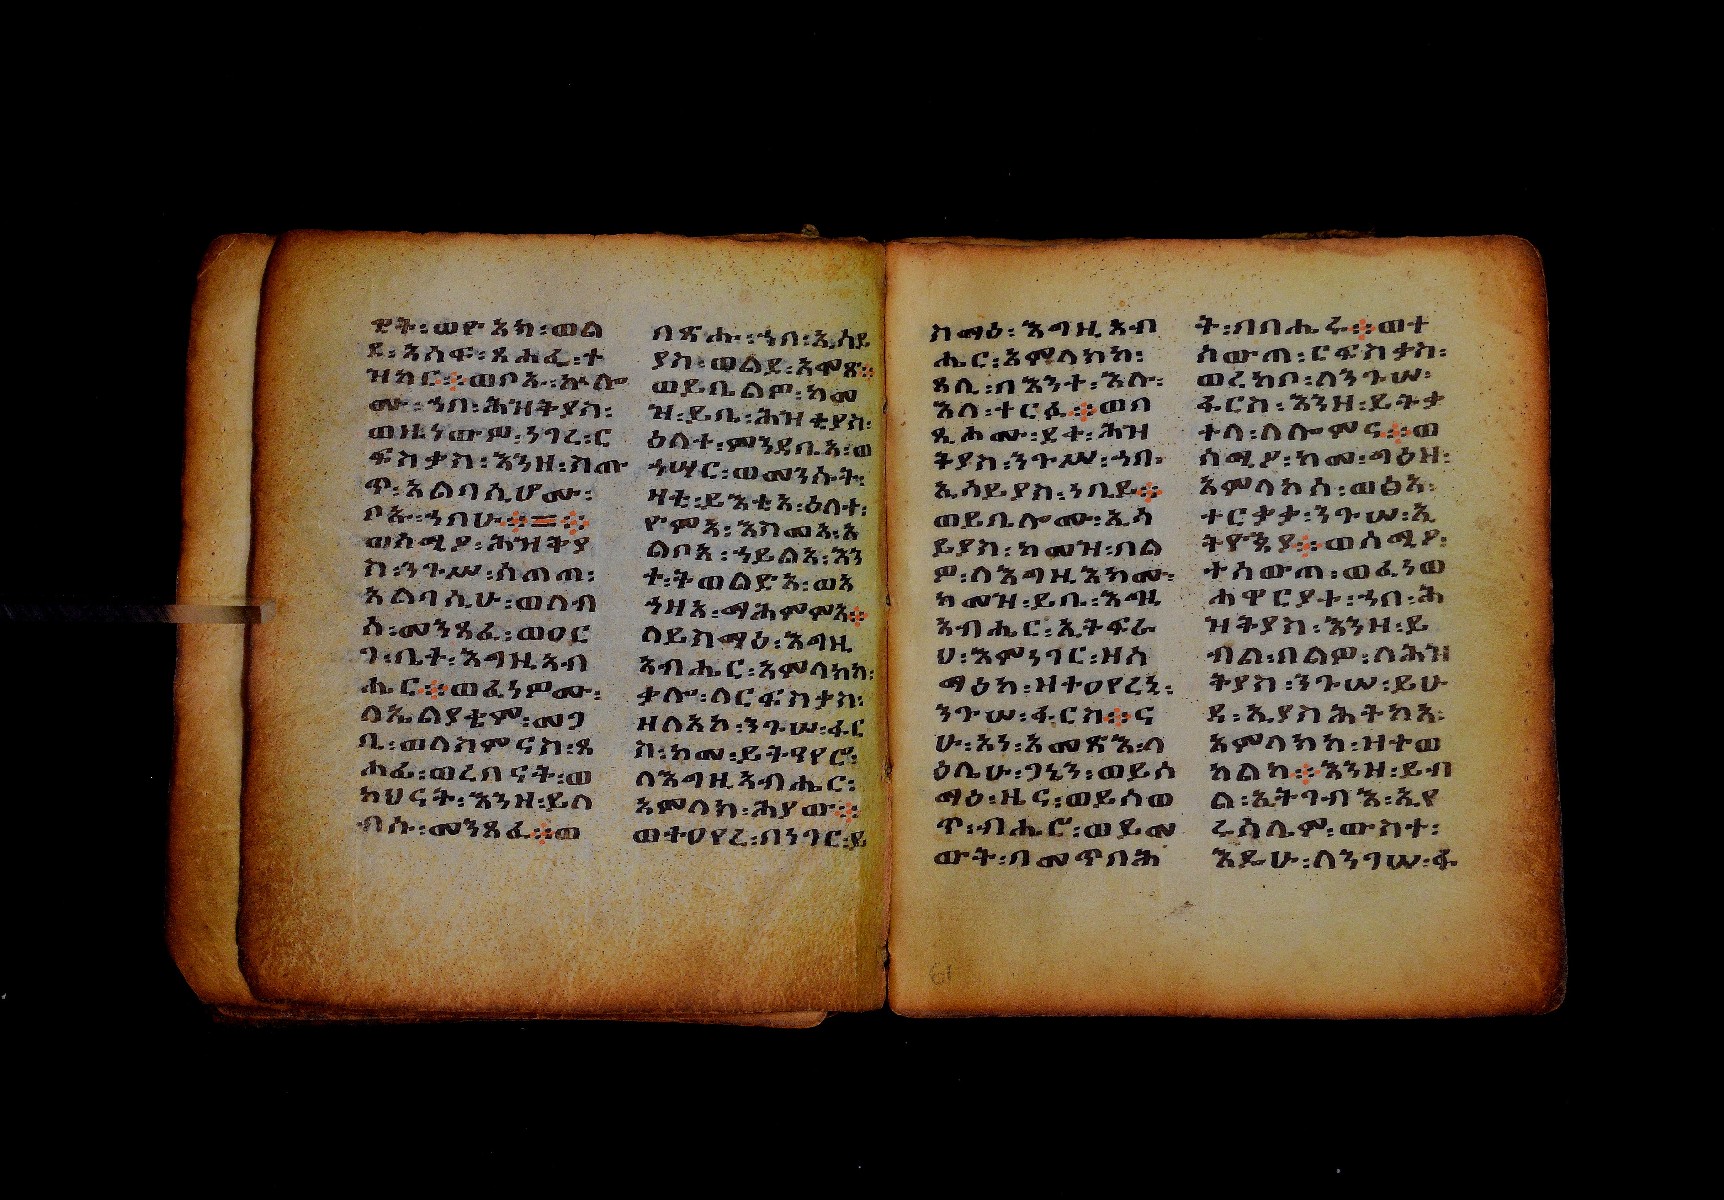 ዊት፡ወዮአክ፡ወል
ደ፡አሳፍ፡ጸሐፌ፡ተ
ዝካር፡፡ወቦኡ፡ኵሎ
ሙ፡ኀበ፡ሕዝቅያስ፡
ወዜነውዎ፡ነገረ፡ር
ፍስቂስ፡እንዘ፡ስጡ
ጥ፡አልባሲሆሙ፡
ቦኡ፡ኀበሁ፡፡=፡፡
ወሰሚዖ፡ሕዝቅያ
ስ፡ንጉሥ፡ሰጠጠ፡
አልባሲሁ፡ወለብ
ሰ፡መንጻፈ፡ወዐር
ገ፡ቤተ፡እግዚአብ
ሔር፡፡ወፈነዎሙ፡
ለኤልያቄም፡መጋ
ቢ፡ወሳስምናስ፡ጸ
ሐፊ፡ወረበናት፡ወ
ካህናት፡እንዘ፡ይለ
ብሱ፡መንጻፈ፡፡ወ
በጽሑ፡ኀበ፡ኢሳይ
ያስ፡ወልደ፡አሞጽ፡፡
ወይቤልዎ፡ከመ
ዝ፡ይቤ፡ሕዝቂያስ፡
ዕለተ፡ምንዳቤ፡ወ
ኀሣር፡ወመንሱት፡
ዛቲ፡ይእቲ፡ዕለተ፡
ዮም፡እስመ፡አ
ልቦ፡ኀይል፡እን
ተ፡ትወልድ፡ወአ
ኀዘ፡ማሕምም፡፡
ለይስማዕ፡እግዚ
አብሔር፡አምላክከ፡
ቃሎ፡ለርፍስቂስ፡
ዘለአከ፡ንጉሠ፡ፋር
ስ፡ከመ፡ይትዓየሮ፡
ለእግዚአብሔር፡
አምላክ፡ሕያው፡፡
ወተዐየረ፡በነገር፡ይ
ስማዕ፡እግዚአብ
ሔር፡አምላክከ፡
ጸሊ፡በእንተ፡እሉ፡
እለ፡ተርፉ፡፡ወበ
ጺሖሙ፡ደቀ፡ሕዝ
ቅያስ፡ንጉሥ፡ኀበ፡
ኢሳይያስ፡ነቢይ፡፡
ወይቤሎሙ፡ኢሳ
ይያስ፡ከመዝ፡በል
ዎ፡ለእግዚእክሙ፡
ከመዝ፡ይቤ፡እግዚ
አብሔር፡ኢትፍራ
ህ፡እምነገር፡ዘሰ
ማዕከ፡ዝተዐየረኒ፡
ንጉሠ፡ፋርስ፡፡ና
ሁ፡አነ፡አመጽእ፡ላ
ዕሌሁ፡ጋኔን፡ወይሰ
ማዕ፡ዜና፡ወይሰወ
ጥ፡ብሔሮ፡ወይመ
ውት፡በመጥባሕ
ት፡በብሔሩ፡፡ወተ
ሰውጠ፡ርፍስቂስ፡
ወረከቦ፡ለንጉሠ፡
ፋርስ፡እንዘ፡ይትቃ
ተላ፡ለሎምና፡፡ወ
ሰሚዖ፡ከመ፡ግዕዘ፡
እምላኪስ፡ወፅአ፡
ተርቃቃ፡ንጉሠ፡ኢ
ትዮጵያ፡፡ወሰሚዖ፡
ተሰውጠ፡ወፈነወ
ሐዋርያተ፡ኀበ፡ሕ
ዝቅያስ፡እንዘ፡ይ
ብል፡በልዎ፡ለሕዝ
ቅያስ፡ንጉሠ፡ይሁ
ዳ፡ኢያስሕትከ፡
አምላክከ፡ዝተወ
ከልከ፡፡እንዘ፡ይብ
ል፡ኢትገብእ፡ኢየ
ሩሳሌም፡ውስተ፡
እዴሁ፡ለንገሠ፡ፋ
61